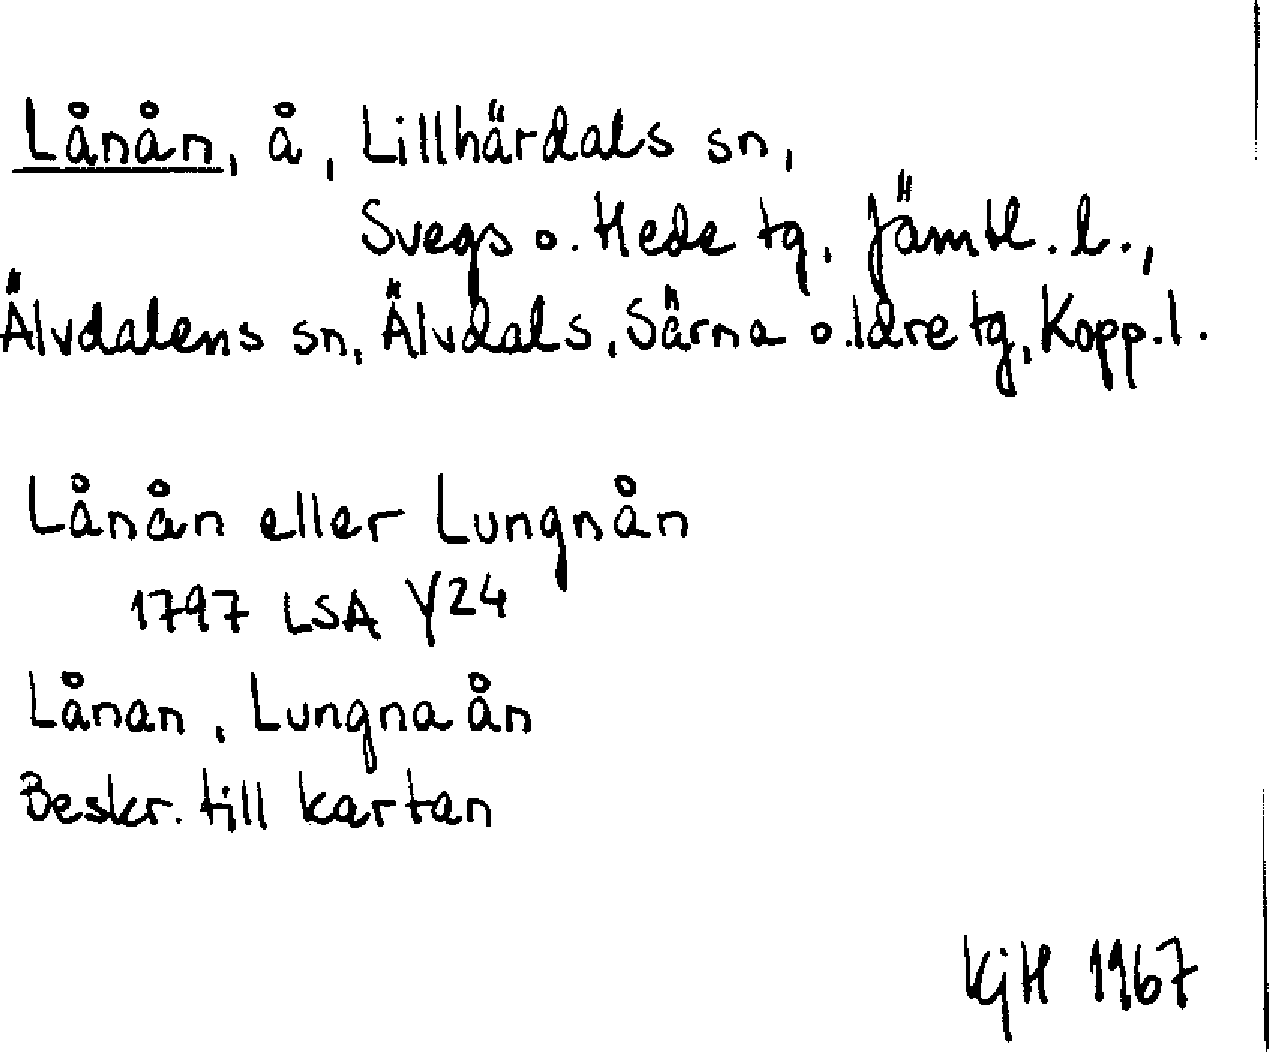 Lånån, å, Lillhärdals sn,
Svegs o. Hede tg, Jämtl. l.,
Älvdalens sn, Älvdals, Särna o. Idre tg, Kopp. l.
Lånån eller Lungnån
1797 LSA Y24
Lånan, Lungna ån
Beskr. till kartan
KjH 1967